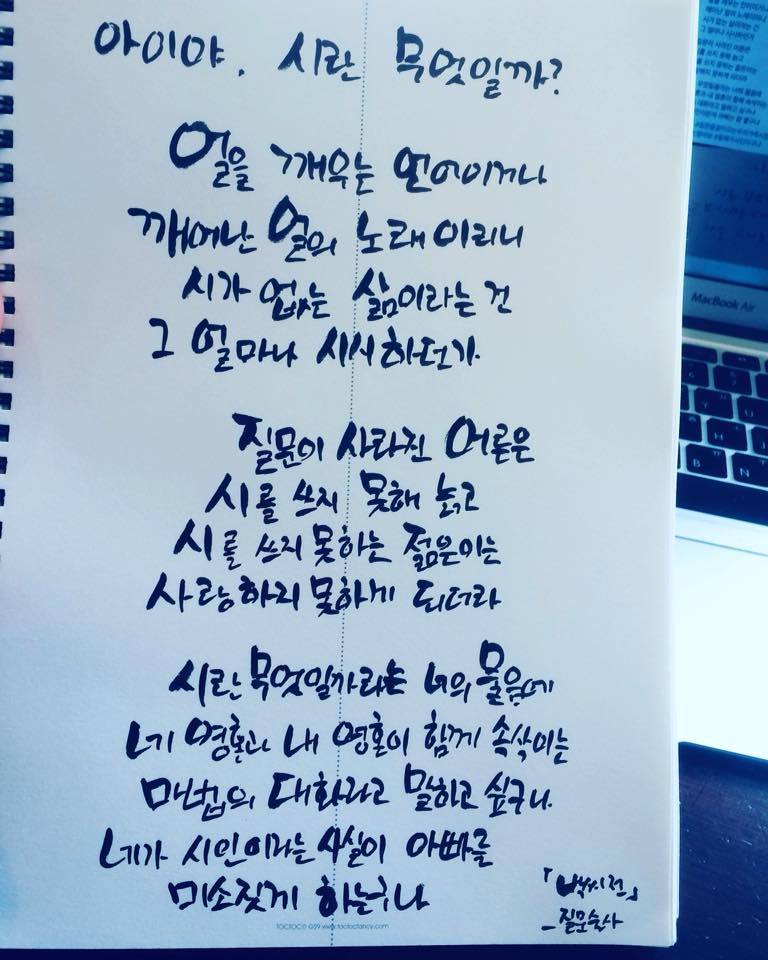 아이야, 시란 무엇일까?
얼을 깨우는 언어이거나
깨어난 얼의 노래이리니
시가 없는 삶이라는 건
그 얼마나 시시하던가
질문이 사라진 어른은
시를 쓰지 못해 늙고
시를 쓰지 못하는 젊은이는
사랑하지 못하게 되더라
시란 무엇일까라는 너의 물음에
네 영혼과 내 영혼이 함께 속삭이는
마법의 대화라고 말하고 싶구나
네가 시인이라는 사실이 아빠를
미소짓게 하는구나
「박씨전」
_질문술사
TOCTOC® G59 www.toctocfancy.com
MacBook Air